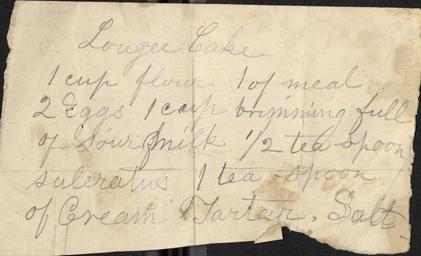 Lougee Cake
1 cup flour 1 of meal
2 Eggs 1 cup brimming full
of sour milk 1/2 tea spoon
saleratus 1 tea-spoon
of Cream Tartar. Salt